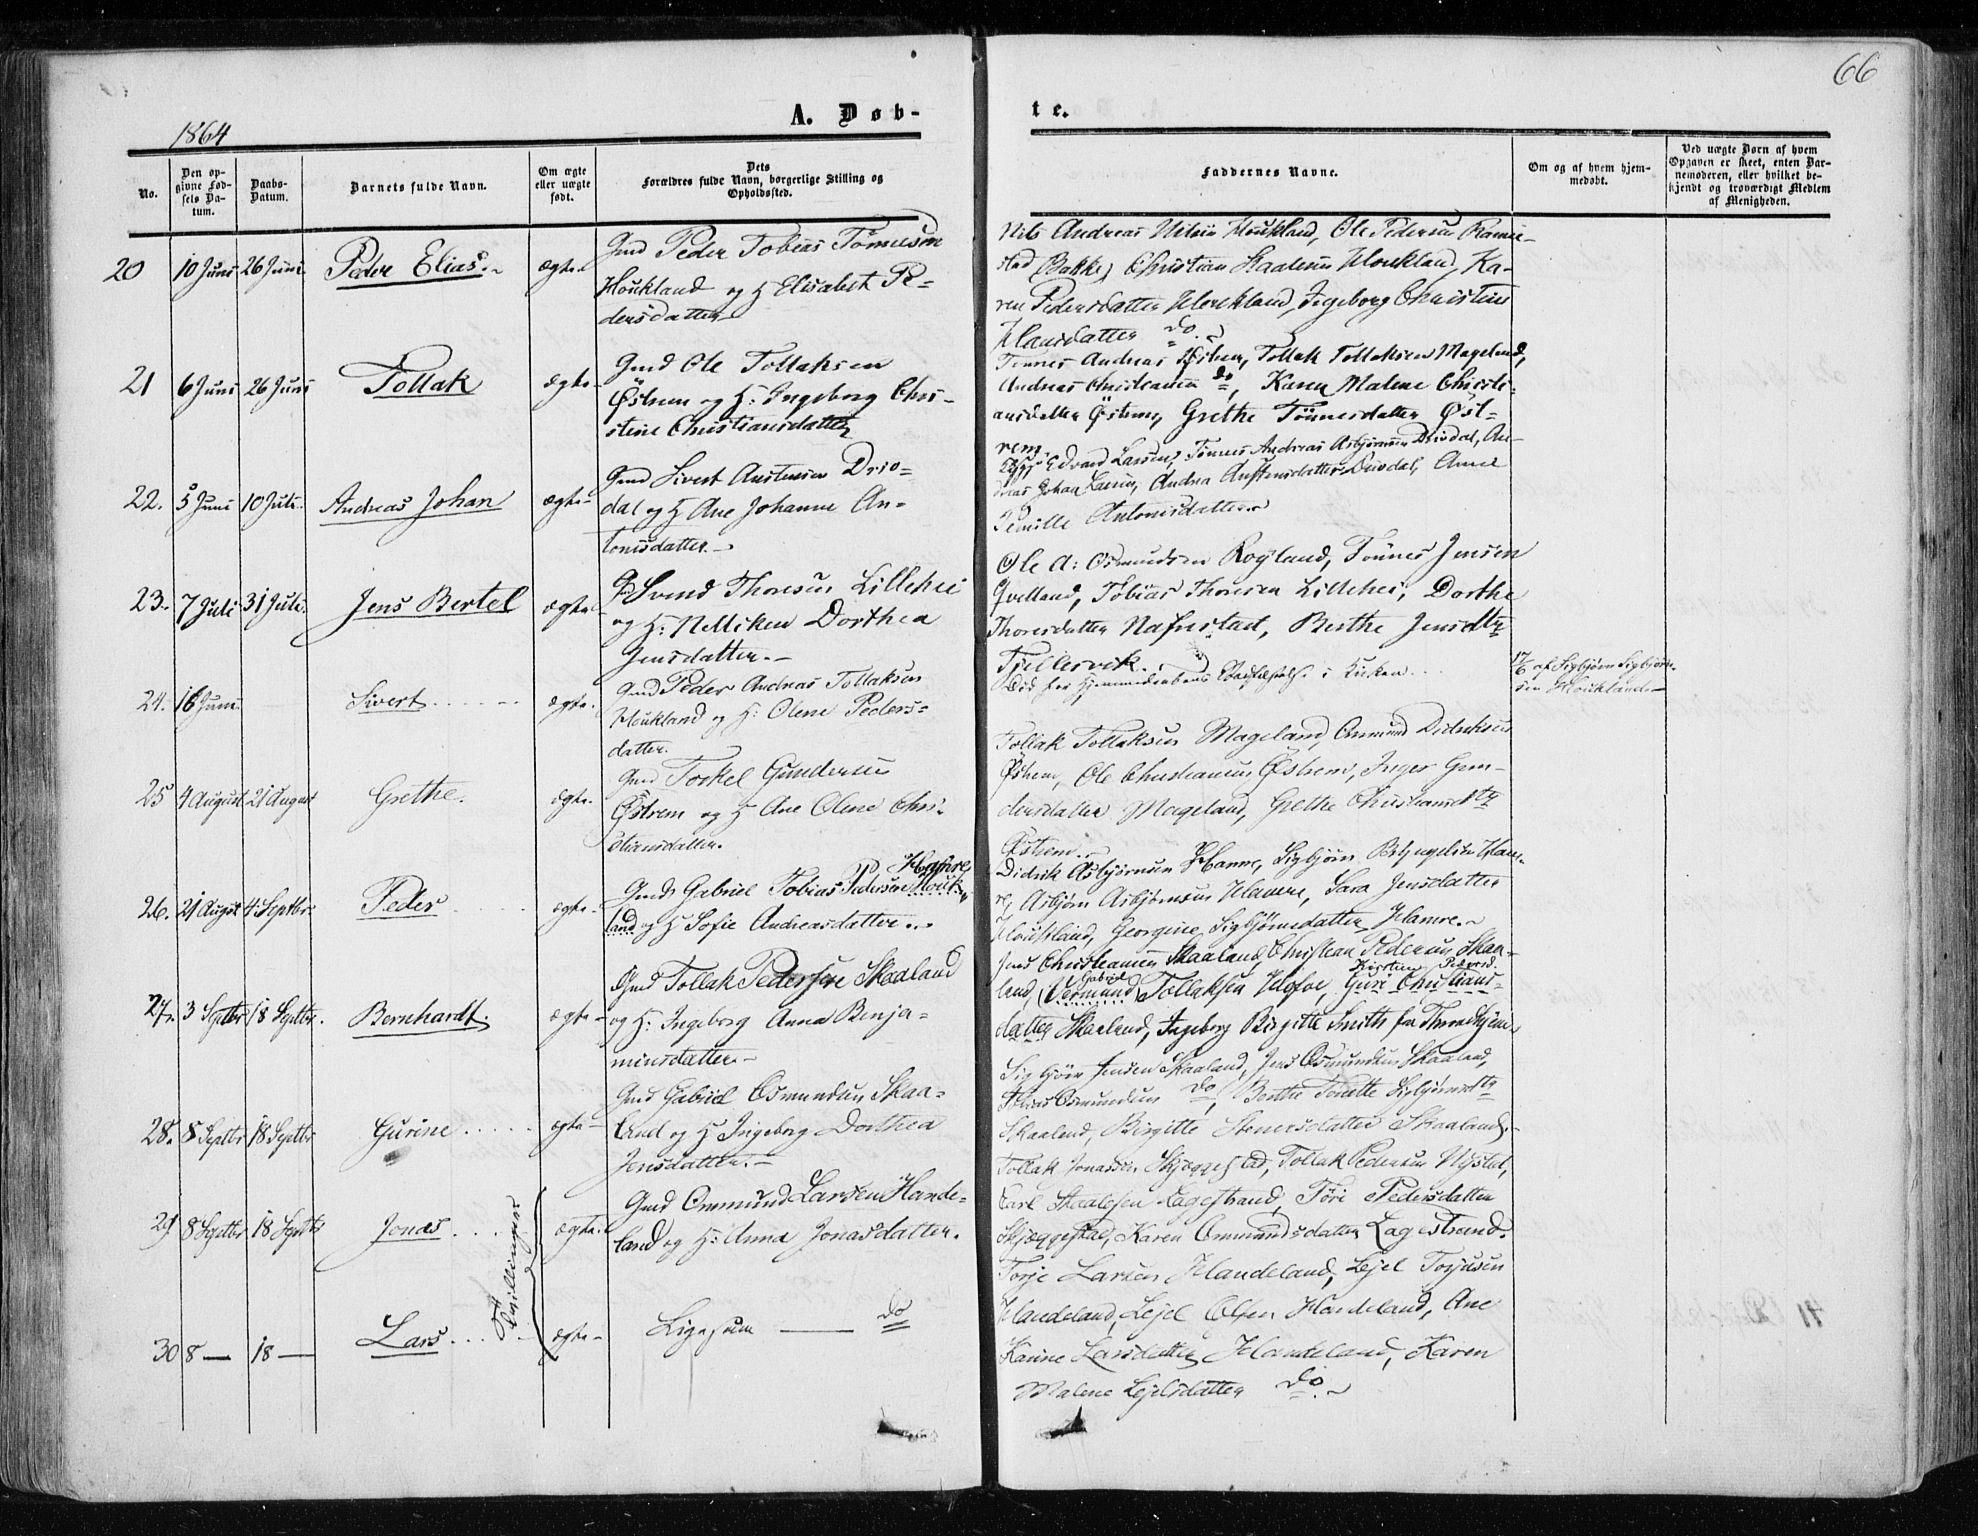 66
1864
A. Døb-
te.
No.
Den op-
givne Fød-
sels Da-
tum.
Daabs-
Datum.
Barnets fulde Navn.
Om ægte
eller uægte
født.
Dets
Forældres fulde Navn, borgerlige Stilling og
Opholdssted.
Faddernes Navne.
Om og af hvem hjem-
medøbt.
Ved uægte Børn af hvem
Opgaven er skeet, enten Bar-
nemoderen, eller hvilket be-
kjendt og troværdigt Medlem
af Menigheden.
20 10 Juni 26 Juni Peder Elias ægte
Gmd Peder Tobias Tønnesen
Houkland og H Elisabet Pe-
dersdatter
Nils Andreas Nilsen Houkland, Ole Pedersen
stad (Bakke) Christian Houkland, Ka-
ren Pedersdatter Houkland, Ingeborg Christine
Hansdatter do
21 6 Juni 26 Juni Tollak ægte
Gmd Ole Tollaksen
Østrem og H: Ingeborg Chri-
stine Christiansdatter
Tønnes Andreas Østrem, Tollak Tollaksen Mageland,
Andreas Christiansen do, Karen Malene Christi-
ansdatter Østrem, Grethe Tønnesdatter Øst-
rem.
22. 5 Juni 10 Juli Andreas Johan ægte
Gmd Sivert Austensen Driv-
dal og H Ane Johanne An-
tonisdatter.
Edvard Larsen, Tønnes Andreas Asbjørnsen Drivdal, An-
dreas Johan Larsen, Andrea Austensdatter Drivdal, Anne
Pernille Antonisdatter
23. 7 Juli 31 Juli. Jens Bertel ægte
Svend Thoresen Lillehei
og H: Nelliken Dorthea
Jensdatter.
Ole A: Osmundsen Røyland, Tønnes Jensen
Qvelland, Tobias Thoresen Lillehei, Dorthe
Thoresdatter Nafnstad, Berthe Jensdtr
Fjellervik.
24. 16 Juni Sivert ægte.
Gmd Peder Andreas Tollaksen
Houkland og H: Olene Peders-
datter.
Død før Hjemmedaabens Stadfæstelse i Kirken
17/6 af Sigbjørn Sigbjørn-
sen Houkland
25 4 August 21 August Grethe. ægte.
Gmd Torkel Gundersen
Østrem og H Ane Olene Chri-
stiansdatter.
Tollak Tollaksen Mageland, Ommund Didriksen
Østrem, Ole Christiansen Østrem, Inger Gun-
dersdatter Mageland, Grethe Christiansdtr
Østrem.
26. 21 August 4 Septbr Peder ægte
Hamre
Gmd Gabriel Tobias Pedersen Houk-
land og H Sofie Andreasdatter.
Didrik Asbjørnsen Hamre, Sigbjørn Ham-
re, Asbjørn Asbjørnsen Hamre, Sara Jensdatter
Houkland, Georgine Sigbjørnsdatter Hamre.
27. 3 Septbr 18 Septbr. Bernhardt. ægte
Gmd Tollak Pedersen Skaaland
og H: Ingeborg Anna Benja-
minsdatter
Jens Christiansen Skaaland, Christian Pedersen Skaa-
Gabriel Kirsten Pedersd.
land, (Ommund) Tollaksen Hofve, Guri Christians-
datter Skaaland, Ingeborg Birgitte Smith
28. 8 Septbr 18 Septbr Gurine ægte
Gmd Gabriel Osmundsen Skaa-
land og H Ingeborg Dorthea
Jensdatter.
Sigbjørn Jensen Skaaland, Jens Osmundsen Skaaland,
Osmundsen do, Berthe Tonette Sigbjørnsdtr
Skaaland, Birgitte Stenersdatter Skaaland
29 8 Septbr 18 Septbr Jonas ægte
Gmd Ommund Larsen Hande-
land og H: Anna Jonasdatter.
Tollak Jonassen Skjeggestad, Tollak Pedersen Nystad,
Carl Lagestrand, Tøri Pedersdatter
Skjeggestad, Karen Ommundsdatter Lagestrand.
Tvillinger
30 8 — 18 — Lars ægte
Ligesom — do
Torje Larsen Handeland, Lejel Torjusen
Handeland, Lejel Olsen Handeland, Ane
Karine Larsdatter Handeland, Karen
Malene Lejelsdatter do